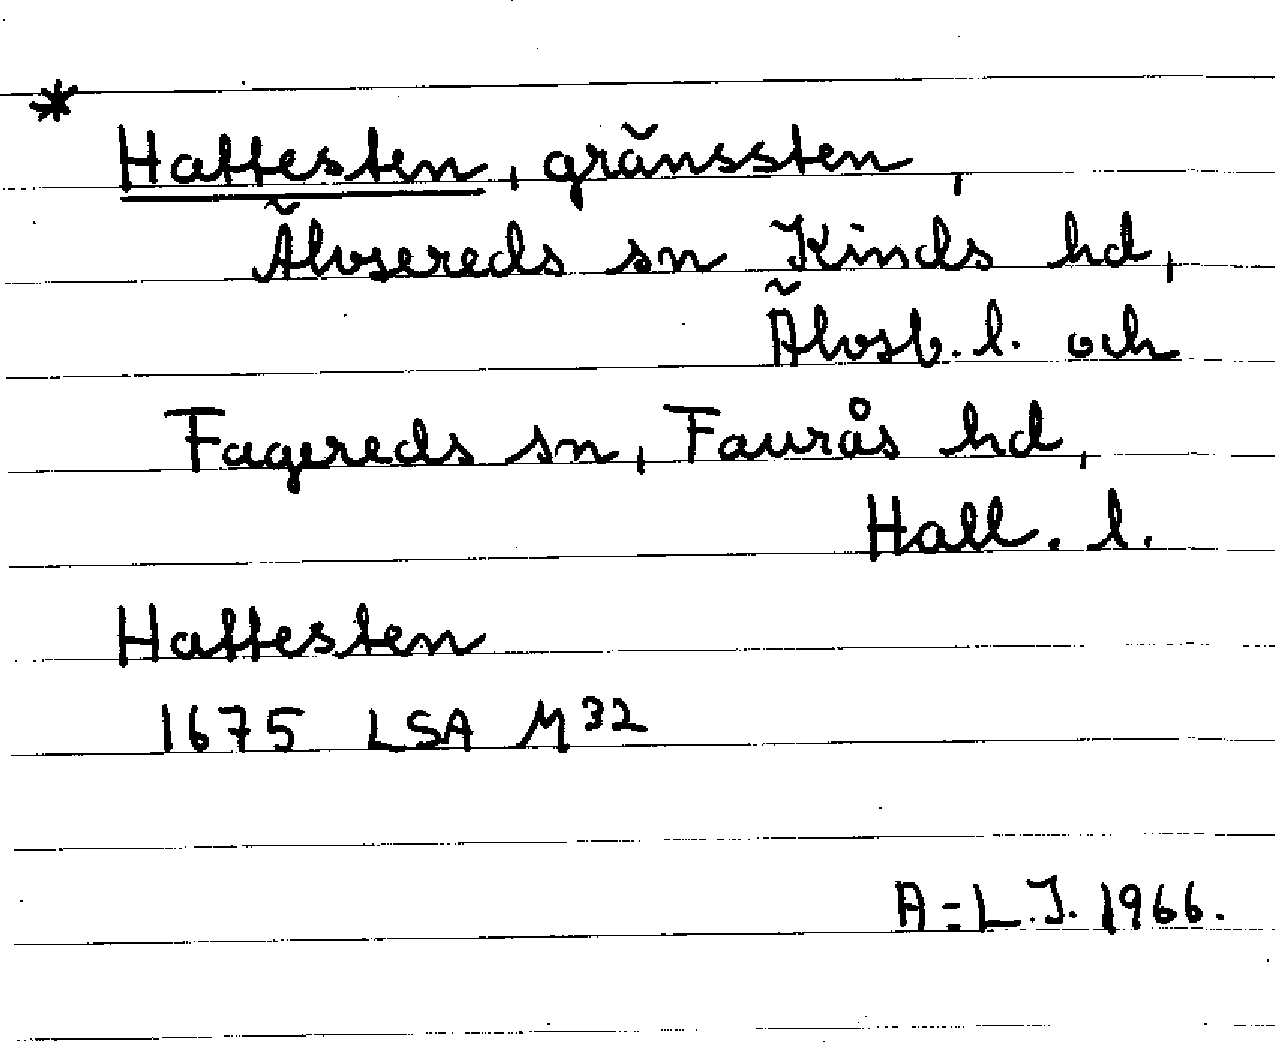 *
Hattesten, gränssten,
Älvsereds sn Kinds hd,
Älvsb. l. och
Fagereds sn, Faurås hd,
Hall. l.
Hattesten
1675 LSA M32
A-L.J. 1966.